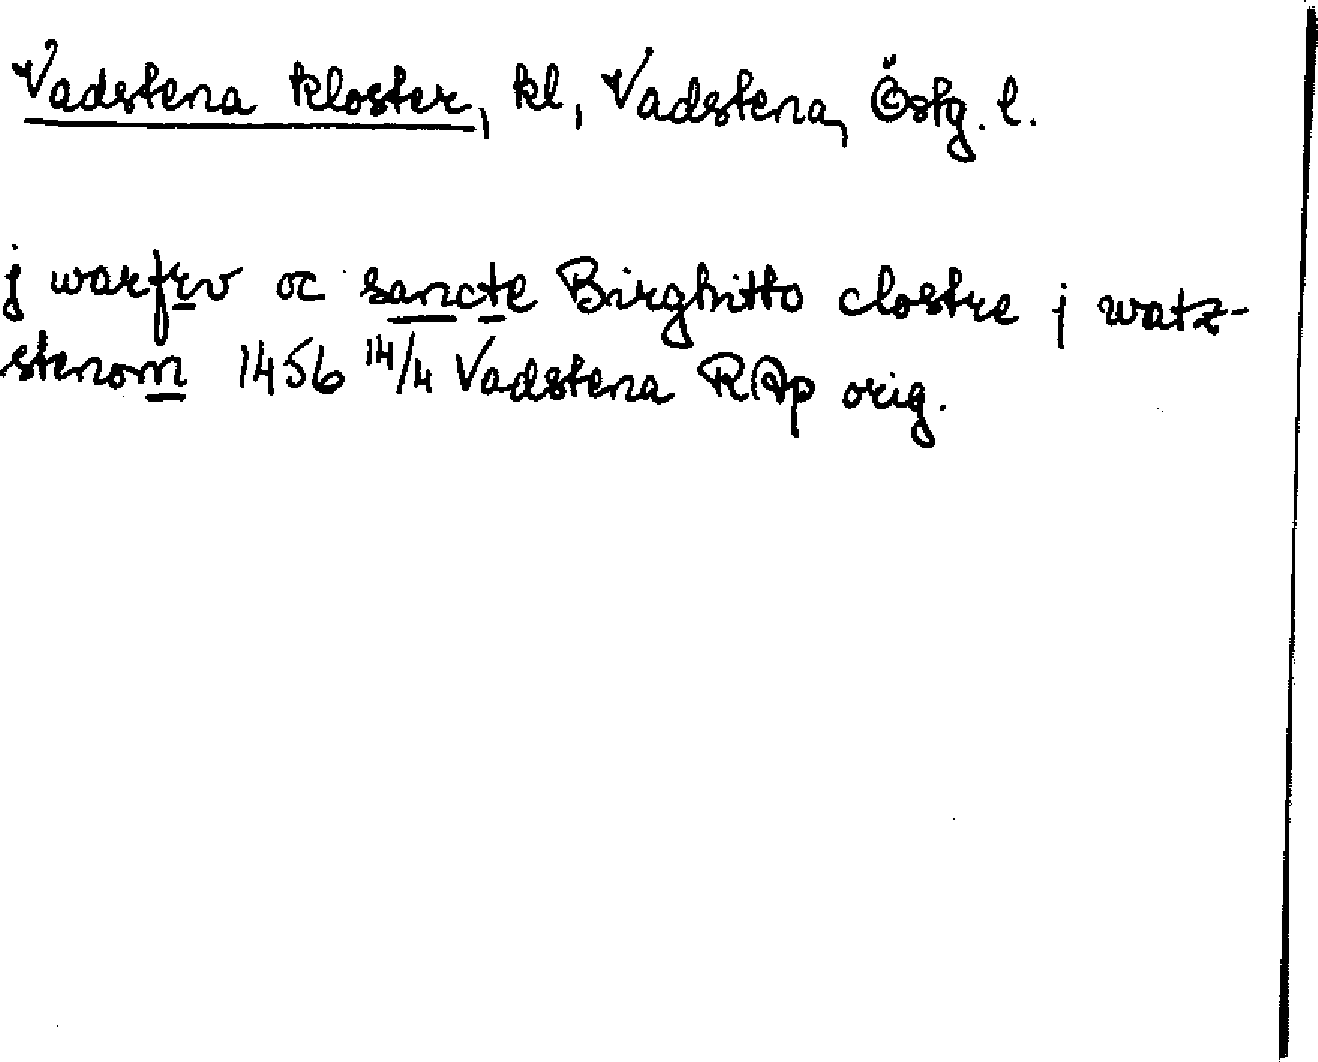 Vadstena kloster, kl, Vadstena, Östg. l.
j warfrv oc sancte Birghitto clostre j watz-
stenom 1456 14/4 Vadstena RAp orig.